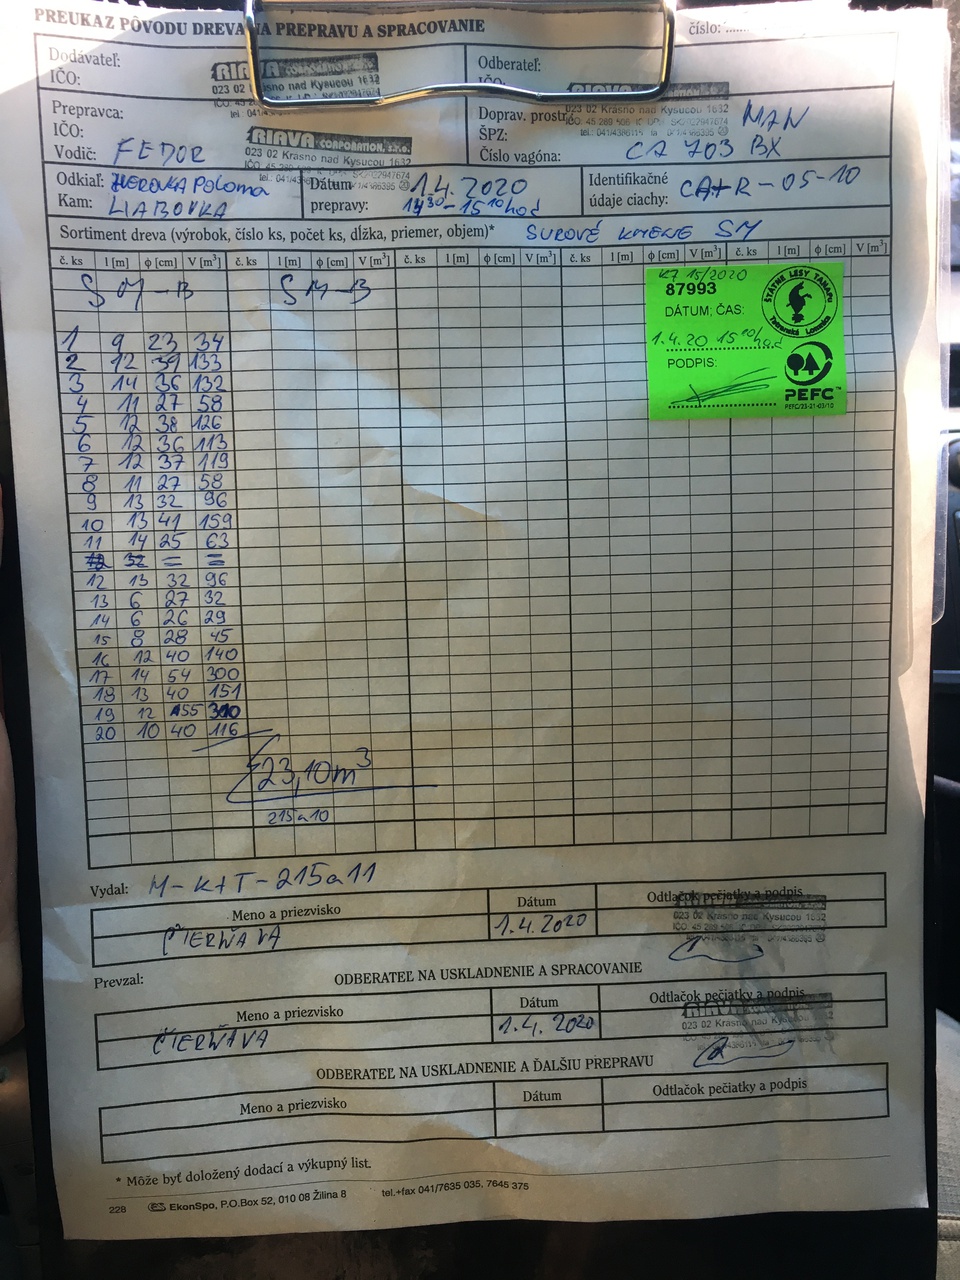 PREUKAZ PÔVODU DREVA NA PREPRAVU A SPRACOVANIE
číslo:
Dodávateľ:
IČO:
RIAVA
023 02 Krásno nad Kysucou 1632
Odberateľ:
IČO:
023 02 Krásno nad Kysucou 1632
Prepravca:
IČO:
Vodič: FEDOR
RIAVA CORPORATION, s.r.o.
023 02 Krásno nad Kysucou 1632
Doprav. prostr. MAN
ŠPZ:
Číslo vagóna: CA 703 BX
Odkiaľ: Poloma
Kam: LIABOVKA
Dátum prepravy: 1.4. 2020
14³⁰-15¹⁰ hod
Identifikačné údaje ciachy: CA+R-05-10
Sortiment dreva (výrobok, číslo ks, počet ks, dĺžka, priemer, objem)* SUROVÉ KMENE SM
č. ks l [m] ϕ [cm] V [m³] č. ks l [m] ϕ [cm] V [m³] č. ks l [m] ϕ [cm] V [m³] č. ks l [m] ϕ [cm] V [m³] č. ks l [m] ϕ [cm] V [m³]
SM-B SM-B
1 9 23 34
2 12 39 133
3 14 36 132
4 11 27 58
5 12 38 126
6 12 36 113
7 12 37 119
8 11 27 58
9 13 32 96
10 13 41 159
11 14 25 63
12 13 32 96
13 6 27 32
14 6 26 29
15 8 28 45
16 12 40 140
17 14 54 300
18 13 40 151
19 12 55 310
20 10 40 116
Σ23,10m³
215a10
K7 15/2020
87993
DÁTUM; ČAS:
1.4.20 15⁰⁰ hod
PODPIS:
ŠTÁTNE LESY TANAPU
Tatranská Lomnica
PEFC™
PEFC/23-21-03/10
Vydal: M-K+T-215a11
Meno a priezvisko Dátum Odtlačok pečiatky a podpis
ČIERŇAVA 1.4.2020
023 02 Krásno nad Kysucou 1632
Prevzal:
ODBERATEĽ NA USKLADNENIE A SPRACOVANIE
Meno a priezvisko Dátum Odtlačok pečiatky a podpis
ČIERŇAVA 1.4. 2020
RIAVA
023 02 Krásno nad Kysucou 1632
ODBERATEĽ NA USKLADNENIE A ĎALŠIU PREPRAVU
Meno a priezvisko Dátum Odtlačok pečiatky a podpis
* Môže byť doložený dodací a výkupný list.
228 EkonSpo, P.O.Box 52, 010 08 Žilina 8 tel.+fax 041/7635 035, 7645 375